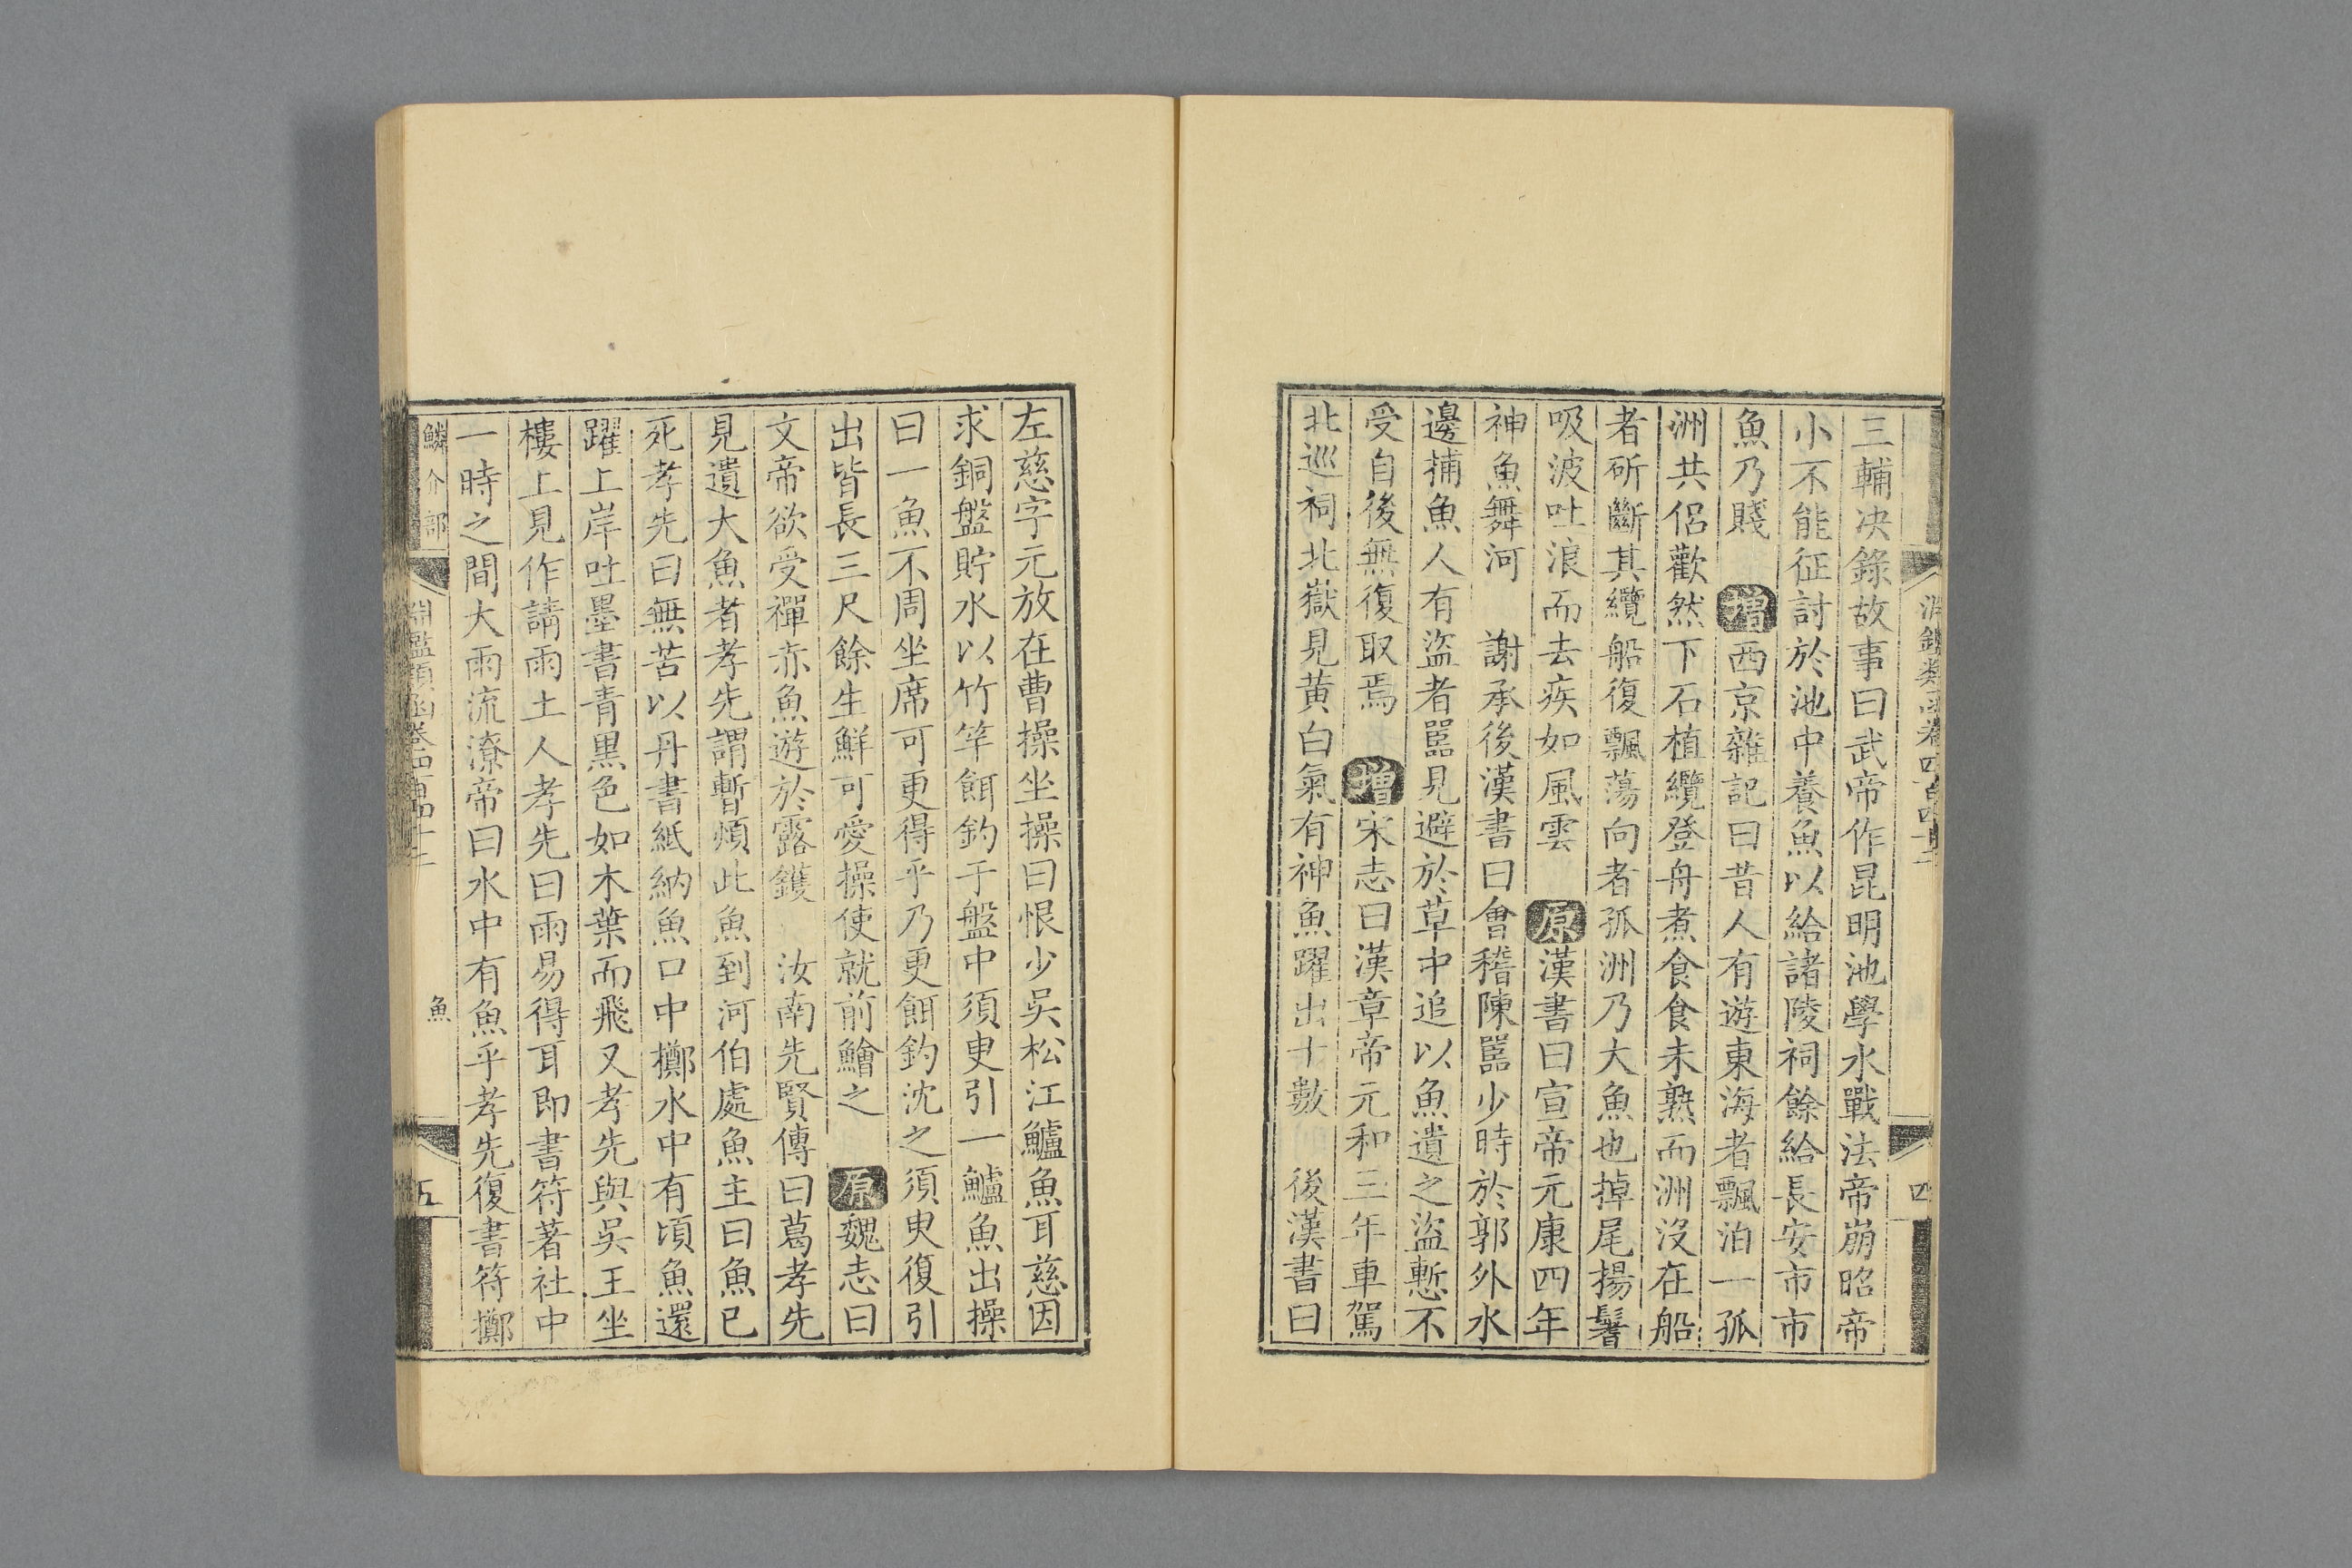 三輔決錄故事曰武帝作昆明池學水戰法帝崩昭帝
小不能征討於池中養魚以給諸陵祠餘給長安市市
魚乃賤 增 西京雜記曰昔人有遊東海者飄泊一孤
洲共侶歡然下石植纜登舟煮食食未熟而洲沒在船
者斫斷其纜船復飄蕩向者孤洲乃大魚也掉尾揚鬐
吸波吐浪而去疾如風雲 原 漢書曰宣帝元康四年
神魚舞河 謝承後漢書曰會稽陳囂少時於郭外水
邊捕魚人有盜者囂見避於草中追以魚遺之盜慙不
受自後無復取焉 增 宋志曰漢章帝元和三年車駕
北巡祠北嶽見黃白氣有神魚躍出十數 後漢書曰
左慈字元放在曹操坐操曰恨少吳松江鱸魚耳慈因
求銅盤貯水以竹竿餌釣于盤中須臾引一鱸魚出操
曰一魚不周坐席可更得乎乃更餌釣沈之須臾復引
出皆長三尺餘生鮮可愛操使就前鱠之 原 魏志曰
文帝欲受禪赤魚遊於露鑊 汝南先賢傳曰葛孝先
見遺大魚者孝先謂暫煩此魚到河伯處魚主曰魚已
死孝先曰無苦以丹書紙納魚口中擲水中有頃魚還
躍上岸吐墨書青黑色如木葉而飛又孝先與吳王坐
樓上見作請雨土人孝先曰雨易得耳即書符著社中
一時之間大雨流潦帝曰水中有魚乎孝先復書符擲
鱗介部
淵鑑類函卷四百四十二
魚
五